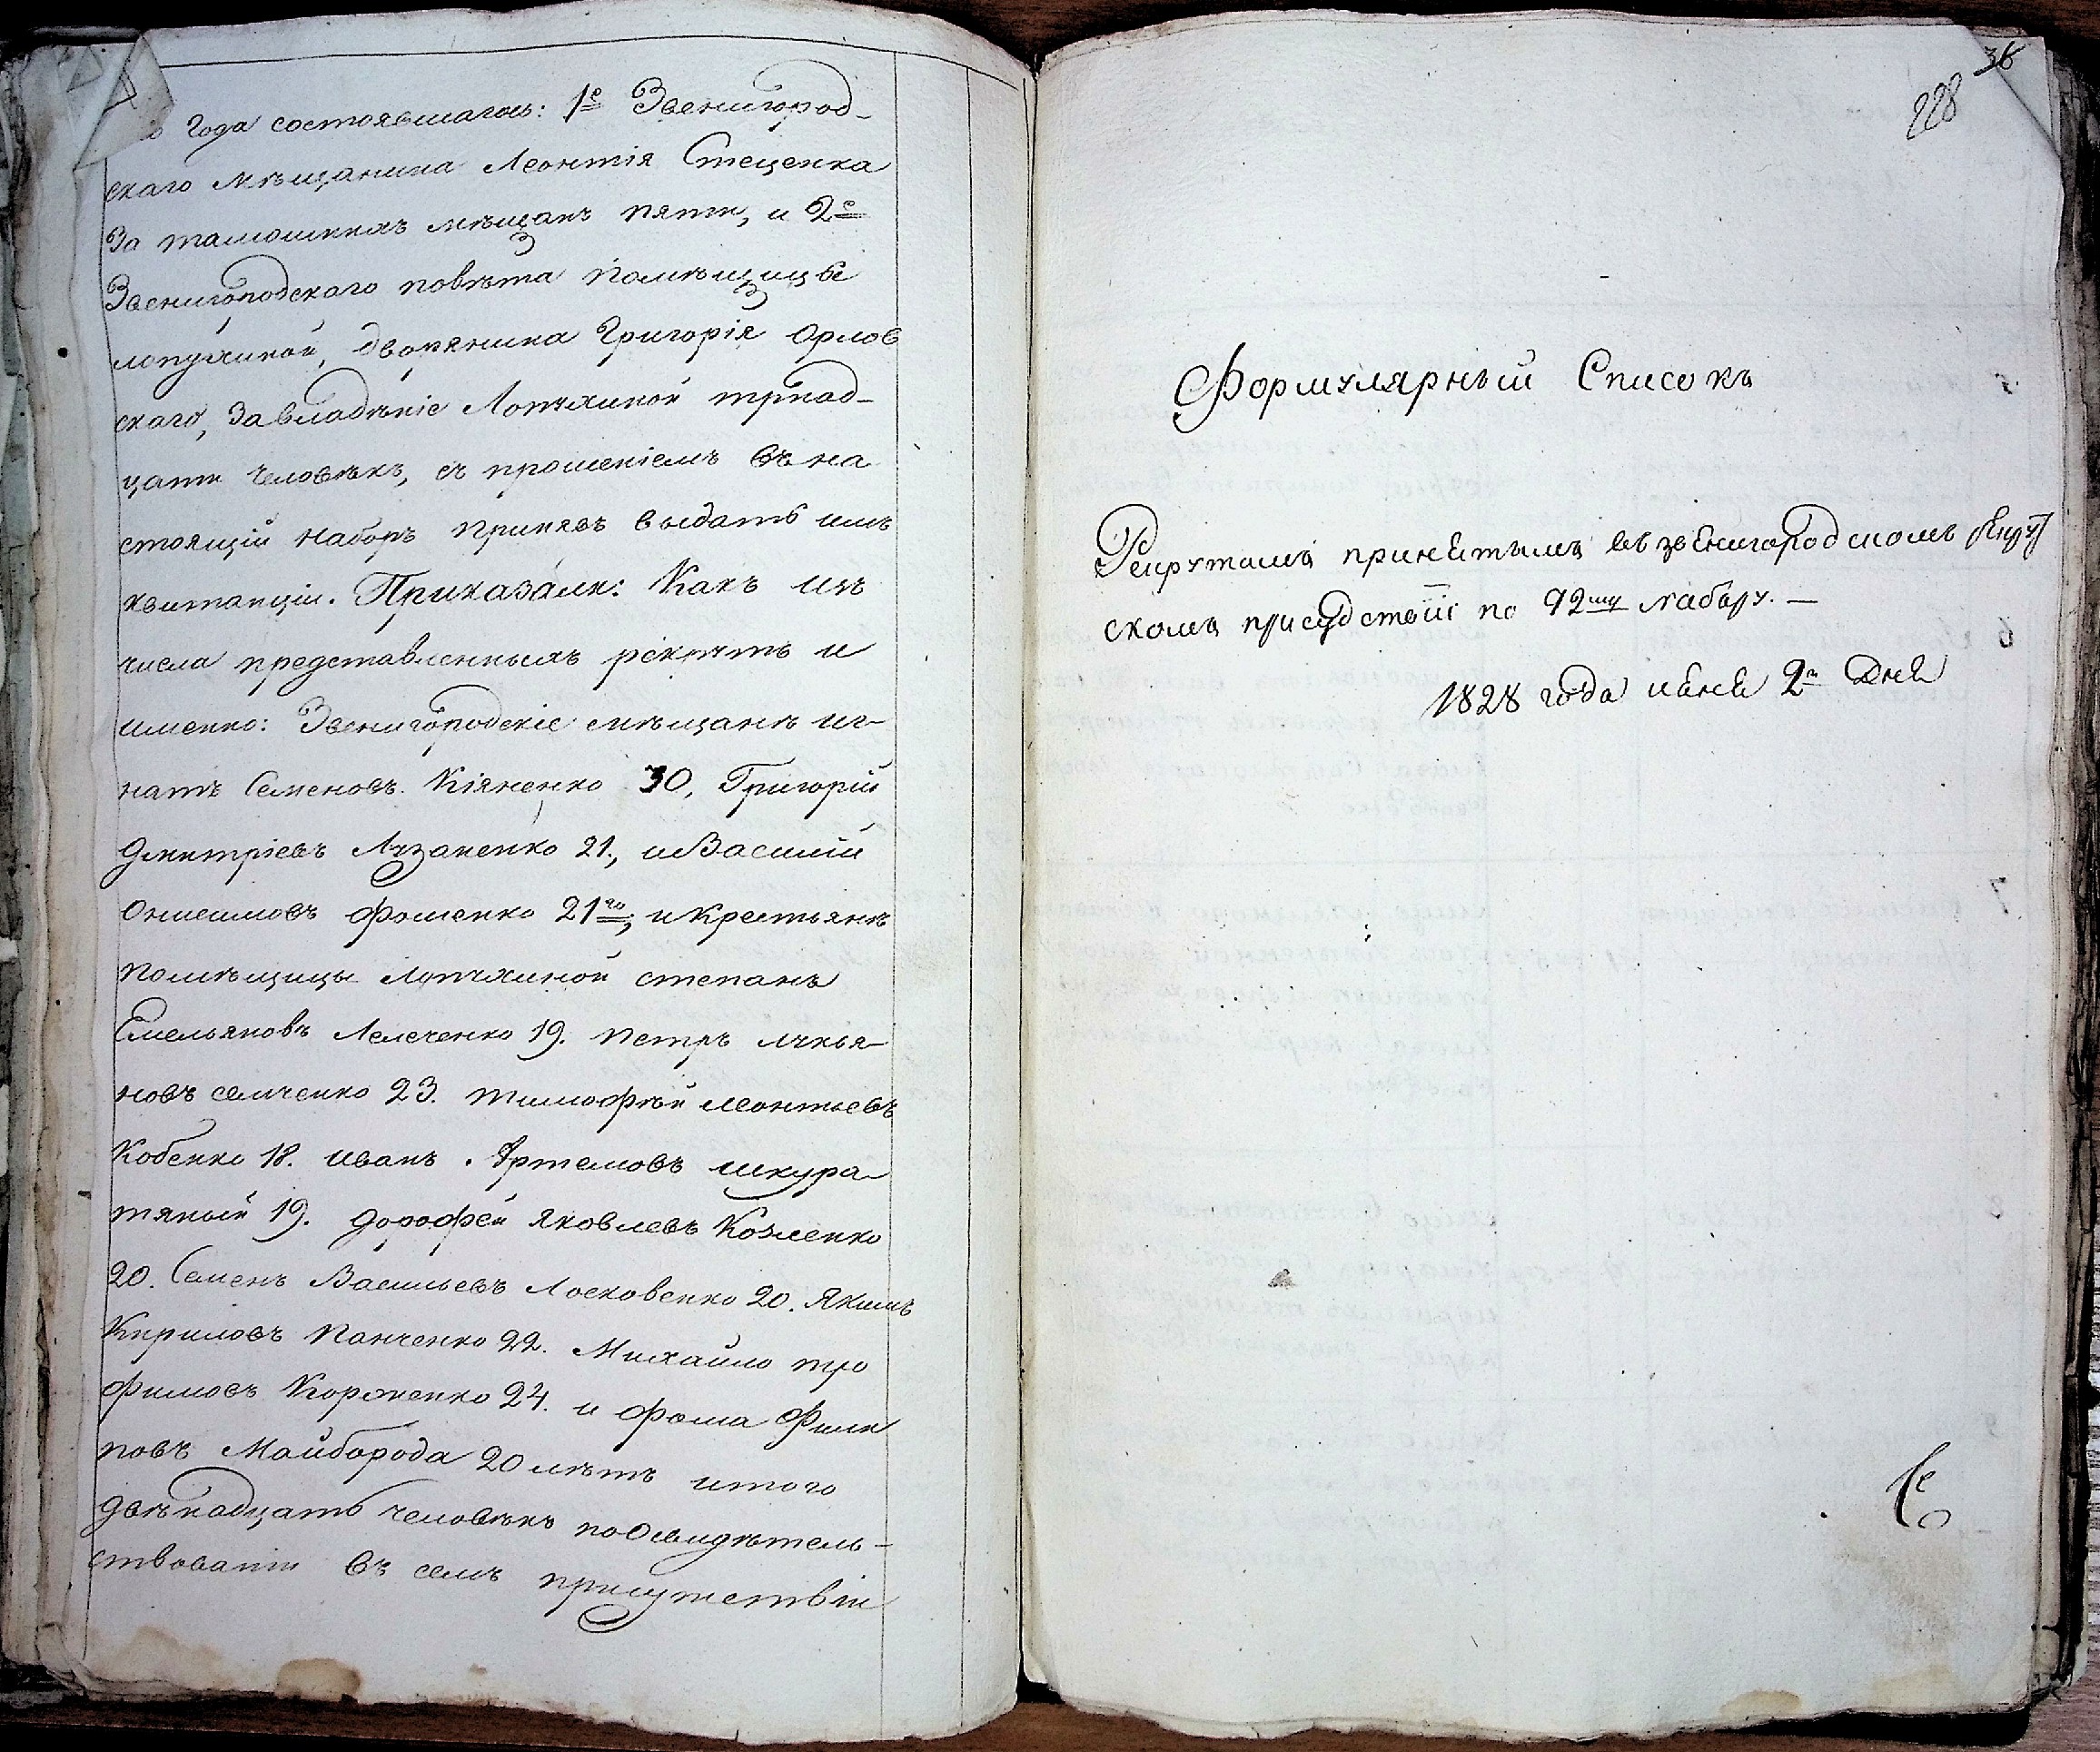 года состоявшагось: 1е Звенигород-
скаго мѣщанина Леонтія Стеценка
За тамошнихъ мѣщанъ пяти, и 2е
Звенигородскаго повѣта помѣщицы
лопухиной, дворянина Григорія Орлов
скаго, За владѣніе Лопухиной тринад-
цати человѣкъ, съ прошеніемъ въ на
стоящій наборъ принявъ выдать имъ
квитанціи. Приказали: Какъ изъ
числа представленныхъ рекрутъ и
именно: Звенигородскіе мѣщане иг-
натъ Семеновъ Кіяненко 30, Григорій
Дмитріевъ Лузаненко 21., и Василий
Онисимовъ Фоменко 21го; и крестьяне
помѣщицы Лопухиной степанъ
Емельяновъ Лелеченко 19. петръ лукья-
новъ семченко 23. тимофѣй леонтьевъ
Кобенко 18. иванъ Артемовъ шкура-
тяный 19. дорофей Яковлевъ Козленко
20. Семенъ Васильевъ Лосковенко 20. Якимъ
Кириловъ Панченко 22. Михайло тро
фимовъ Корженко 24. и фома Фили
повъ Майборода 20 лѣтъ итого
двѣнадцать человѣкъ по освидѣтель-
ствованіи въ семъ присутствіи
36
228
Формулярный Списокъ
Рекрутамъ принетымъ въ звенигородскомъ рекрут
скомъ присудствіи по 92му набору. —
1828 года июня 2го дня